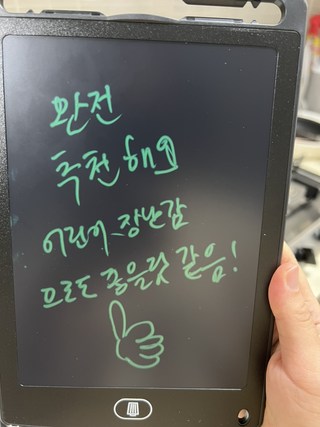 완전
추천해요
어린이 장난감
으로도 좋을것 같음!